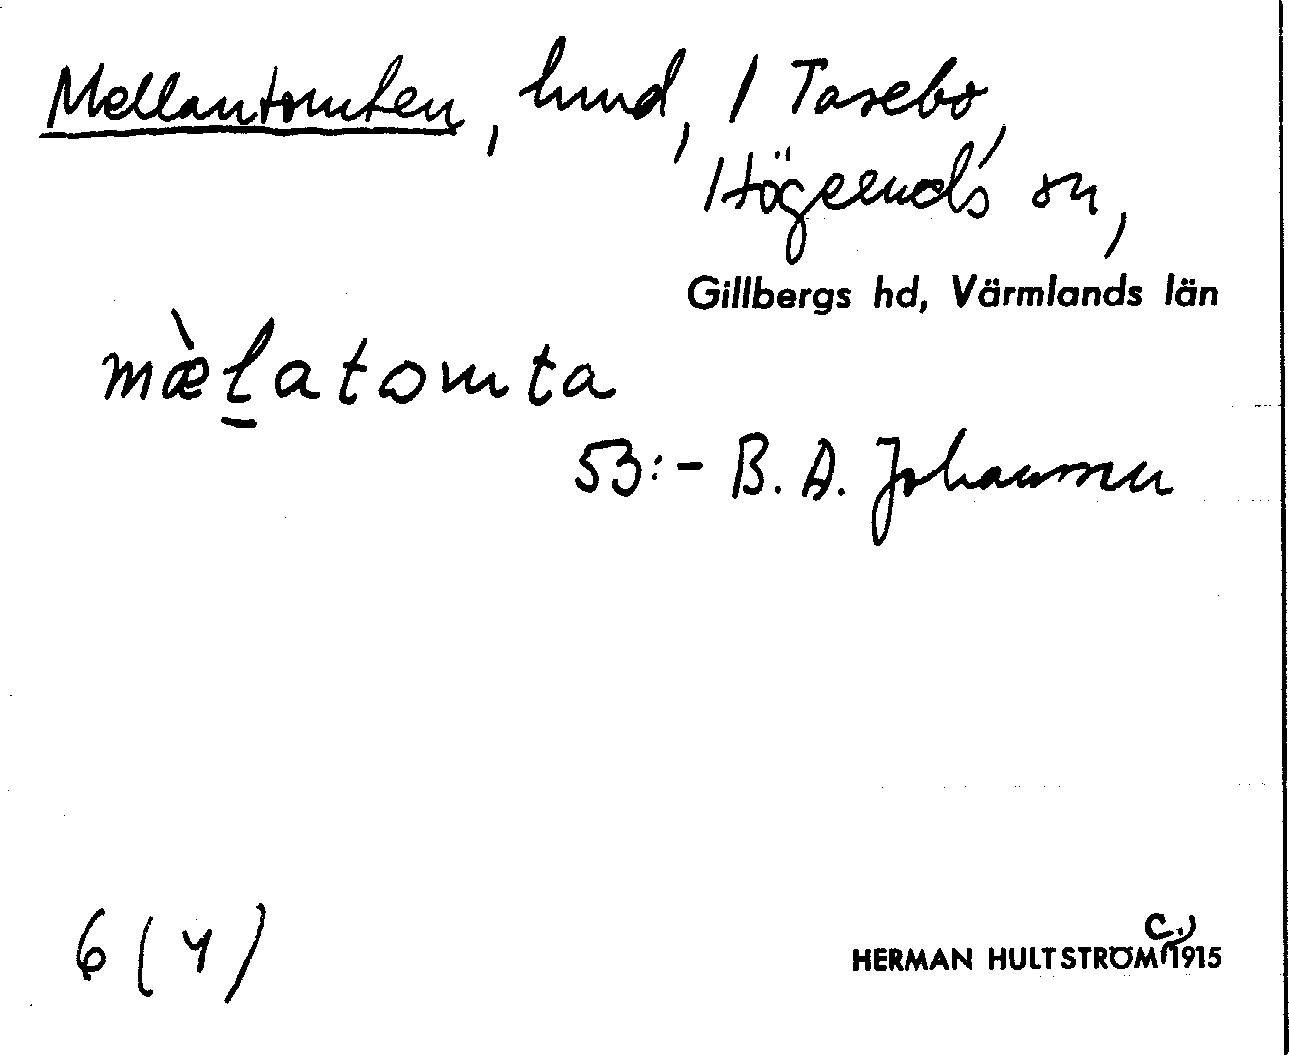 Mellantomten, hmd, / Tasebo,
Högeruds sn,
Gillbergs hd, Värmlands län
mæ̀l̠atomta
53:- B. A. Johansson
6 (4)
HERMAN HULTSTRÖM c. 1915